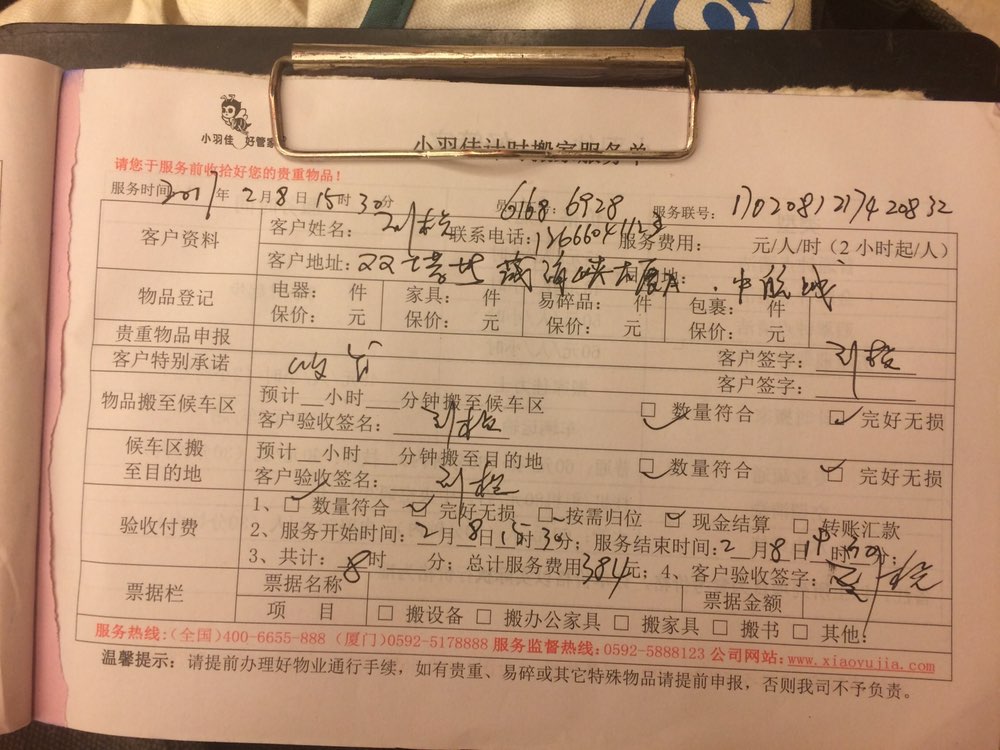 小羽佳 好管家
小羽佳计时搬家服务单
请您于服务前收拾好您的贵重物品！
服务时间 2017年 2月8日 15时30分 6168: 6928 服务联号: 1702081217420832
客户资料 客户姓名: 联系电话: 服务费用: 元/人/时（2小时起/人）
客户地址:
物品登记 电器: 件 家具: 件 易碎品: 件 包裹: 件
保价: 元 保价: 元 保价: 元 保价: 元
贵重物品申报 客户签字:
客户特别承诺 客户签字:
物品搬至候车区 预计 小时 分钟搬至候车区 □ 数量符合 □ 完好无损
客户验收签名:
候车区搬至目的地 预计 小时 分钟搬至目的地 □ 数量符合 □ 完好无损
客户验收签名:
验收付费 1、□ 数量符合 完好无损 □ 按需归位 □ 现金结算 □ 转账汇款
2、服务开始时间: 2月8日15时30分；服务结束时间: 2月8日 时30分；
3、共计: 8时 分；总计服务费用384元；4、客户验收签字:
票据栏 票据名称 票据金额
项 目 □ 搬设备 □ 搬办公家具 □ 搬家具 □ 搬书 □ 其他:
服务热线:(全国)400-6655-888 (厦门)0592-5178888 服务监督热线:0592-5888123 公司网站:www.xiaoyujia.com
温馨提示: 请提前办理好物业通行手续，如有贵重、易碎或其它特殊物品请提前申报，否则我司不予负责。